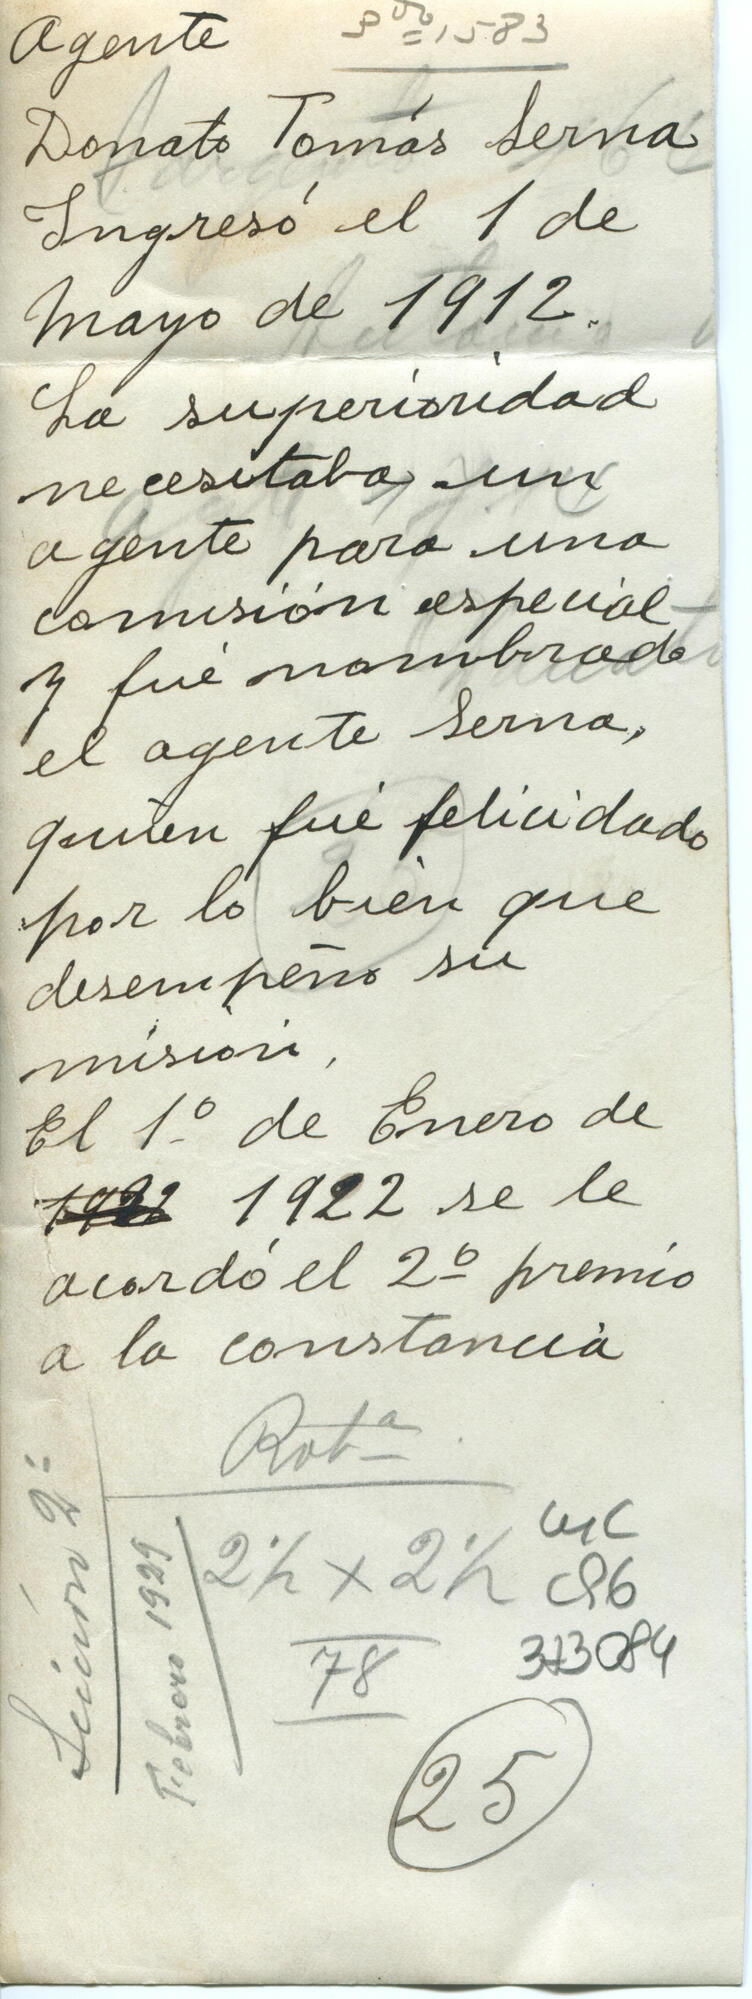 Agente
1583
Donato Tomás Serna
Ingresó el 1 de
Mayo de 1912.
La superioridad
necesitaba un
agente para una
comisión especial
y fué nombrado
el agente Serna,
quien fué felicidado
por lo bien que
desempeño su
misión,
El 1º de Enero de
1922 1922 se le
acordó el 2º premio
a la constancia
Rotª
2½ x 2½
78
373084
25
2ª
Febrero 1929